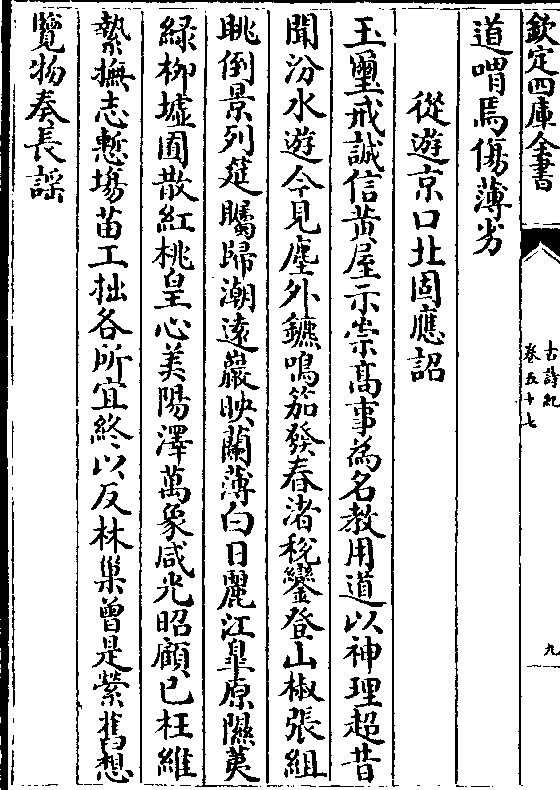 欽定四庫全書
古詩紀
卷五十七
九
道喟焉傷薄劣
從遊京口北固應詔
玉璽戒誠信黃屋示崇高事為名教用道以神理超昔
聞汾水遊今見塵外鑣鳴笳發春渚稅鑾登山椒張組
眺倒景列筵矚歸潮遠巖映蘭薄白日麗江臯原隰荑
綠柳墟囿散紅桃皇心美陽澤萬象咸光昭顧已枉維
縶撫志慙塲苗工拙各所宜終以反林巢曾是縈舊想
覽物奏長謡